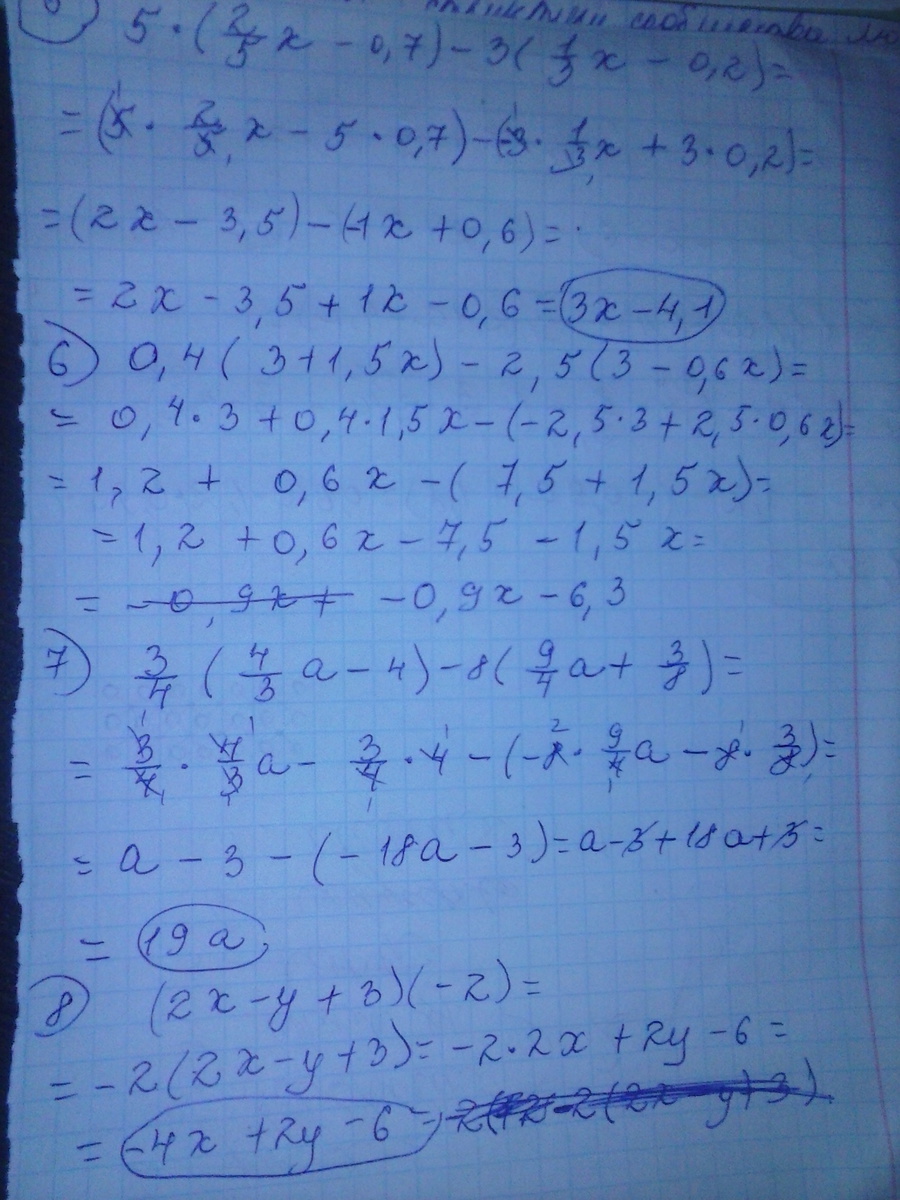 5 · (2/5 x - 0,7) - 3(1/3 x - 0,2) =
= (5 · 2/5 x - 5 · 0,7) - (-3 · 1/3 x + 3 · 0,2) =
= (2x - 3,5) - (-1x + 0,6) =
= 2x - 3,5 + 1x - 0,6 = 3x - 4,1
6) 0,4 ( 3 + 1,5x) - 2,5(3 - 0,6x) =
= 0,4 · 3 + 0,4 · 1,5x - (-2,5 · 3 + 2,5 · 0,6x) =
= 1,2 + 0,6x - ( 7,5 + 1,5x) =
= 1,2 + 0,6x - 7,5 - 1,5x =
= -0,9x + -0,9x - 6,3
7) 3/4 ( 4/3 a - 4) - 8( 9/4 a + 3/8 ) =
= 3/4 · 4/3 a - 3/4 · 4 - (-8 · 9/4 a - 8 · 3/8) =
= a - 3 - (-18a - 3) = a - 3 + 18a + 3 =
= 19a
8) (2x - y + 3)(-2) =
= -2(2x - y + 3) = -2 · 2x + 2y - 6 =
= -4x + 2y - 6